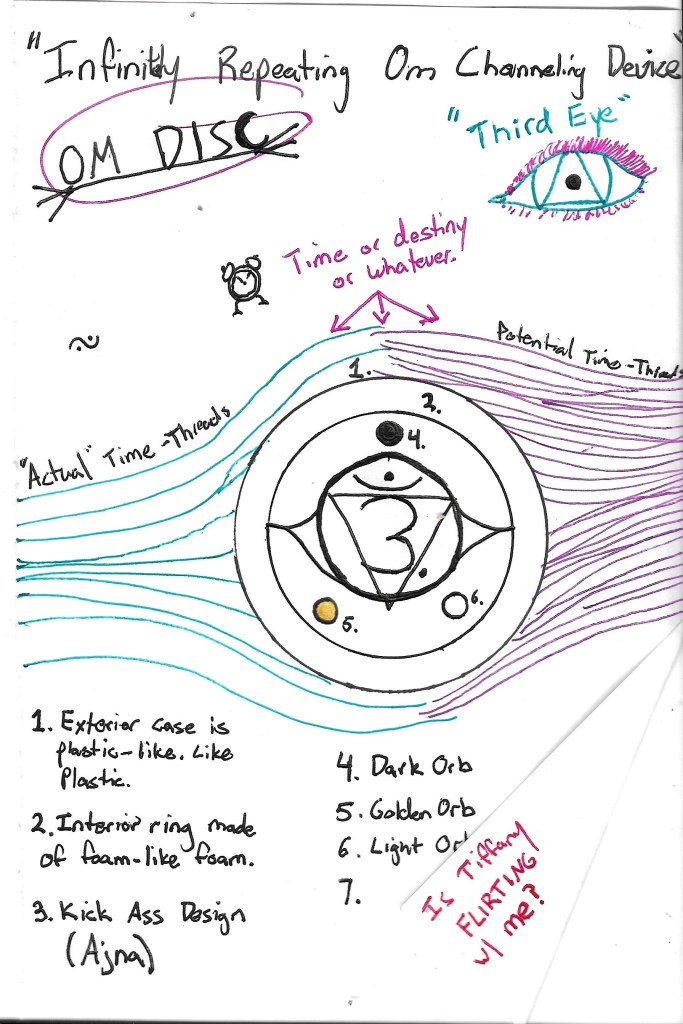 "Infinitly Repeating Om Channeling Device"
OM DISC
"Third Eye"
Time or destiny
or whatever.
Potential Time-Threads
"Actual" Time-Threads
1.
2.
4.
5.
6.
1. Exterior case is
plastic-like. Like
Plastic.
2. Interior ring made
of foam-like foam.
3. Kick Ass Design
(Ajna)
4. Dark Orb
5. Golden Orb
6. Light Or
7.
Is Tiffany
FLIRTING
w/ me?